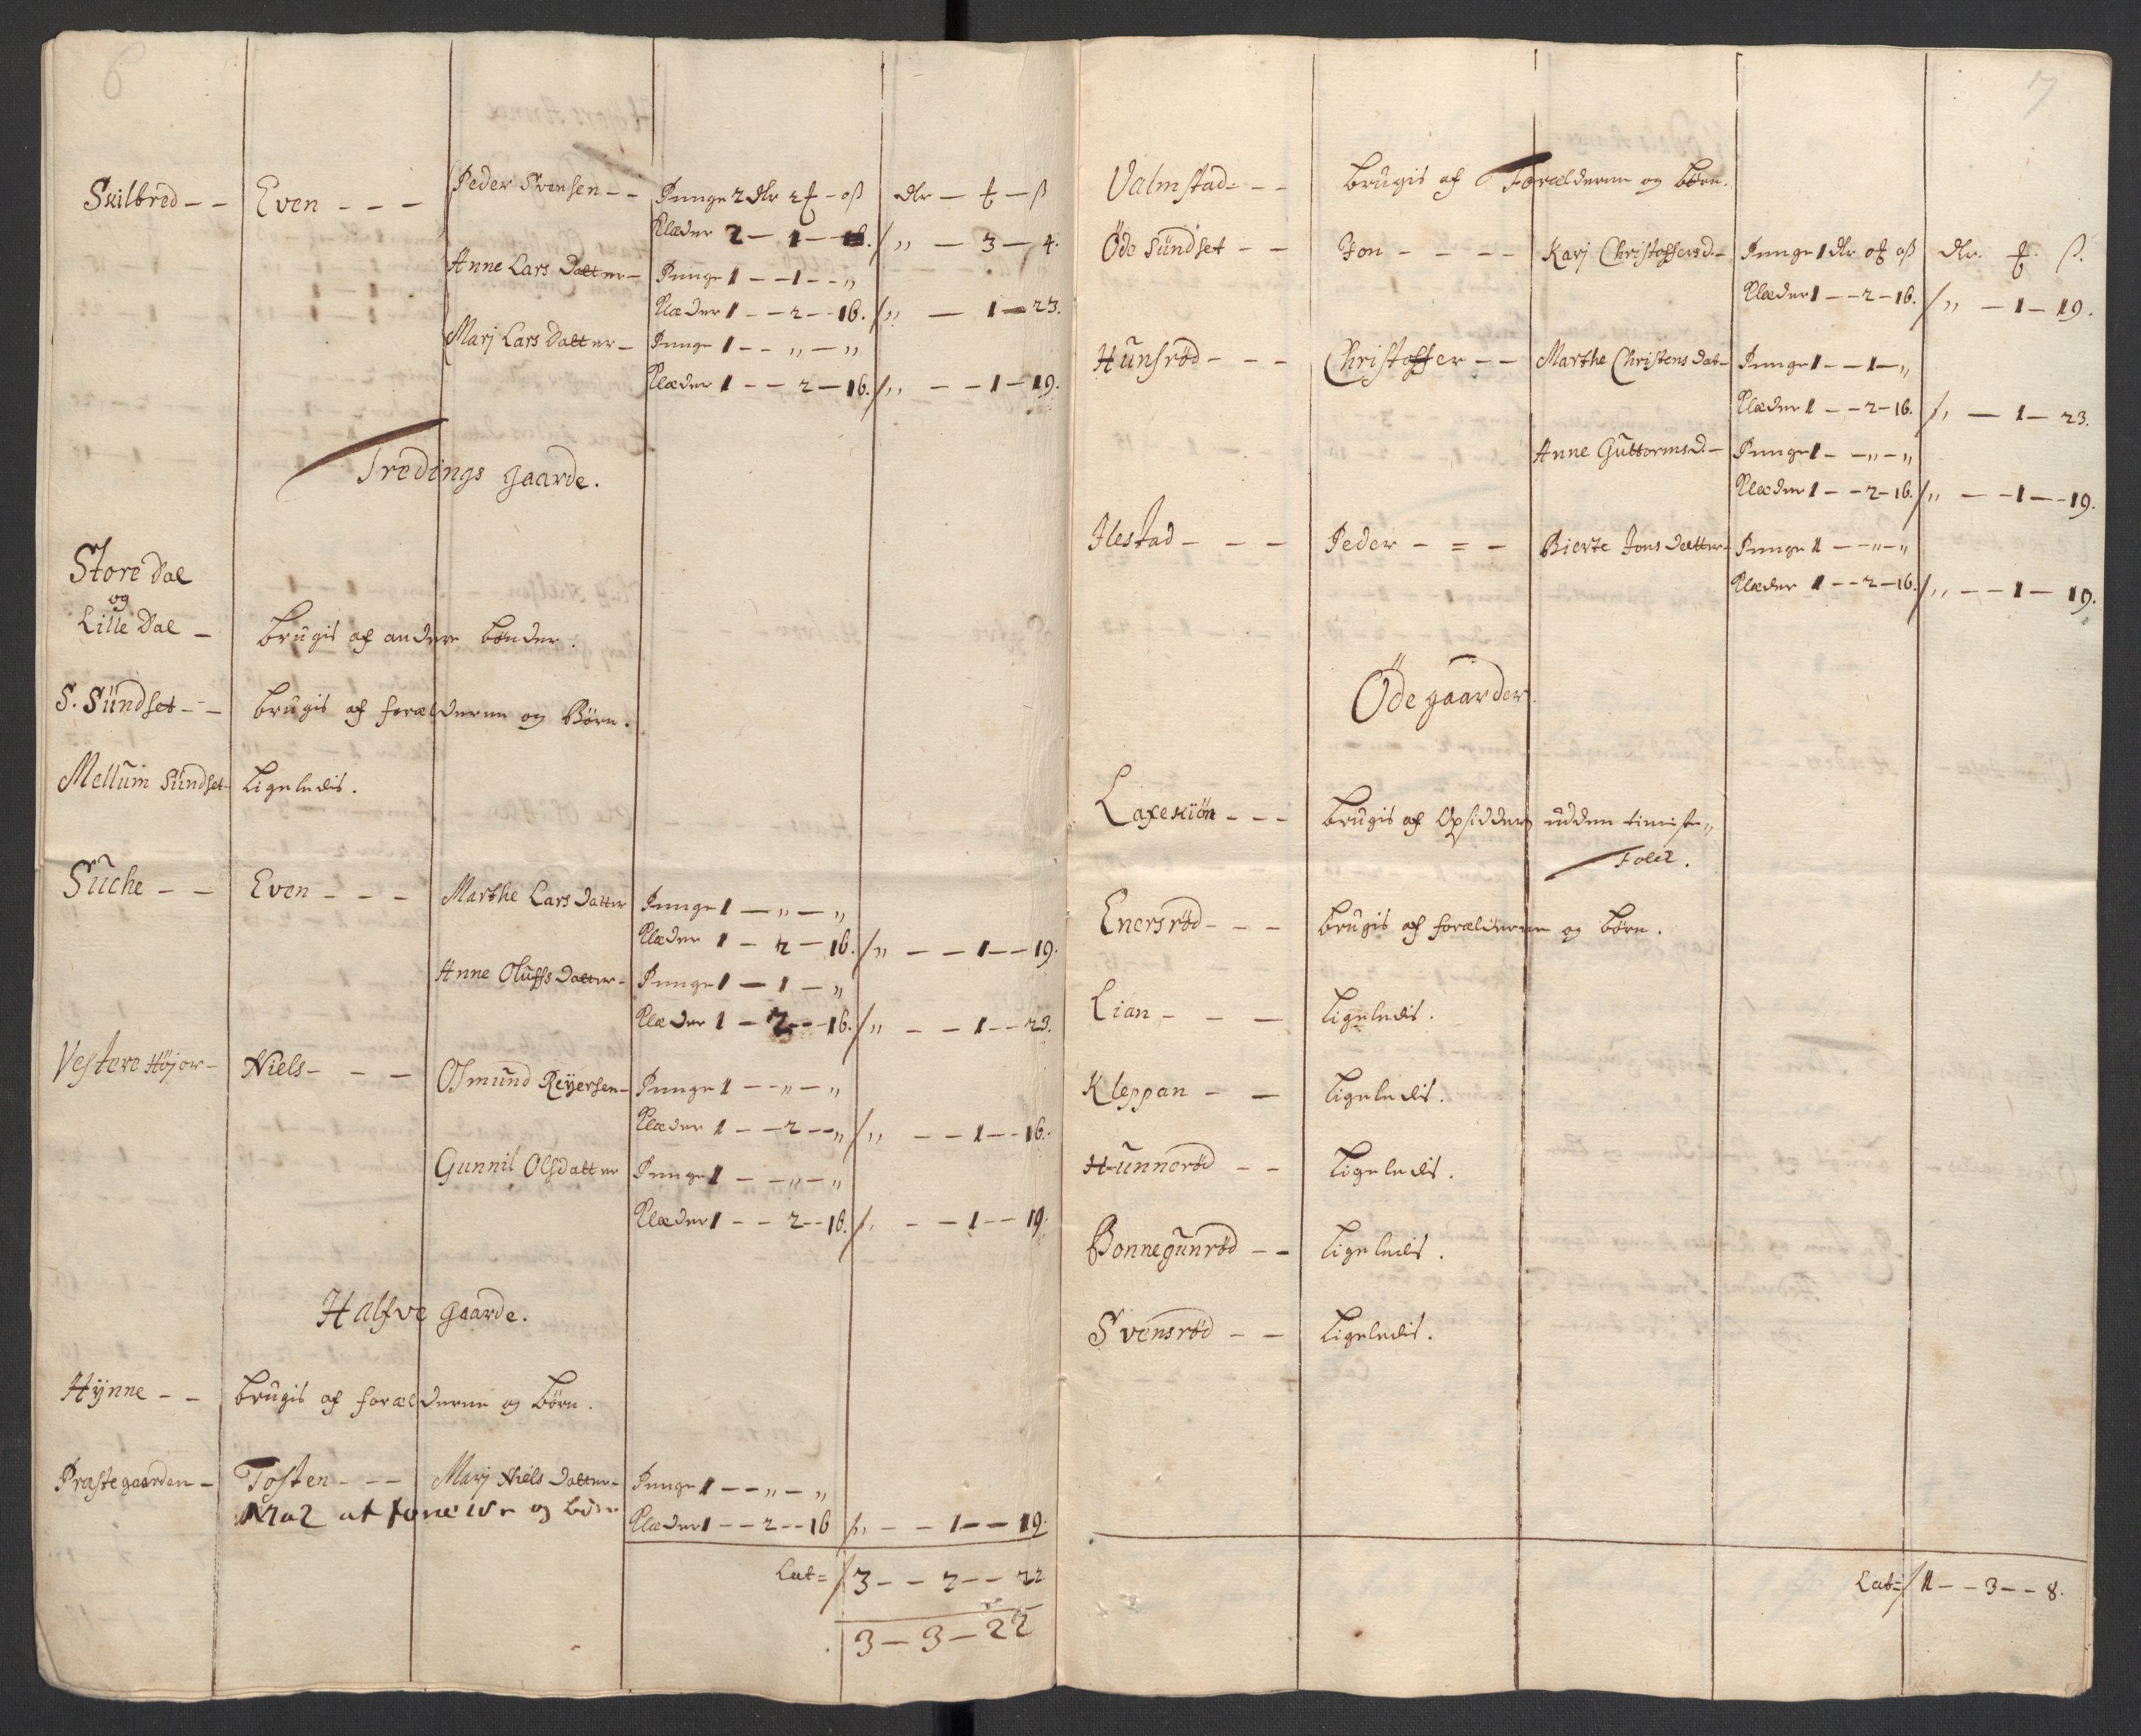 6
Skilbred - - Even - - - Peder Svensen - - Penge 2 dlr 2 ƒ - 0 ß dlr - ƒ - ß
Klæder 2 - 1 - 16. / „ - 3 - 4.
Anne Lars Datter - Penge 1 - - 1 - - „
Klæder 1 - - 2 - - 16. / „ - 1 - 23.
Marj Lars Datter - Penge 1 - - „ - „
Klæder 1 - - 2 - 16. / „ - - 1 - 19.
Tredings gaarde.
Store Dal
og
Lille Dal - brugis af andere bønder.
S. Sündset - - brugis af forælderne og Børn.
Mellüm Sündset - Ligeledis.
Süche - - Even - - - Marthe Lars Datter Penge 1 - „ - „
Klæder 1 - 2 - 16. / „ - - 1 - - 19.
Anne Oluffs Datter - Penge 1 - 1 - „
Klæder 1 - 2 - - 16. / „ - - 1 - - 23.
Vestere Höjor - Niels - - - Osmünd Reÿersen - Penge 1 - - „ - „
Klæder 1 - - 2 - - „ / „ - - 1 - - 16.
Gunnil Olsdatter Penge 1 - - „ - „
Klæder 1 - - 2 - - 16. / „ - - 1 - - 19.
Halfve gaarde.
Hÿnne - - brugis af forælderne og børn.
Præstegaarden - Tosten - - - Marj Niels Datter - Penge 1 - - „ - „
og børn Klæder 1 - - 2 - - 16 / „ - - 1 - - 19.
Lat = / 3 - - 2 - - 22
3 - 3 - 22
7
Valmstad - - brugis af Forælderne og børn.
Öde Sündset - - Jon - - - - Karj Christoffersd. - Penge 1 dlr 0 ƒ 0 ß dlr. ƒ. ß.
Klæder 1 - - 2 - 16. / „ - 1 - 19.
Hünsröd - - - Christoffer - - Marthe Christens dat - Penge 1 - - 1 - „
Klæder 1 - - 2 - 16. / „ - 1 - 23.
Anne Güttormsd. - Penge 1 - - „ - „
Klæder 1 - - 2 - 16. / „ - - 1 - - 19.
Ilestad - - - Peder - = - Bierte Jons Datter - Penge 1 - - „ - „
Klæder 1 - - 2 - 16. / „ - - 1 - 19.
Öde gaarder.
Laxekiön - - - brugis af Opsidder udden tieniste„
Folck.
Enersröd - - - brugis af forælderne og børn.
Lian - - - Ligeledis.
Kleppan - - Ligeledis.
Hünneröd - - Ligeledis.
Bonnegünröd - - Ligeledis.
Svensröd - - Ligeledis.
Lat = / 1 - - 3 - - 8.